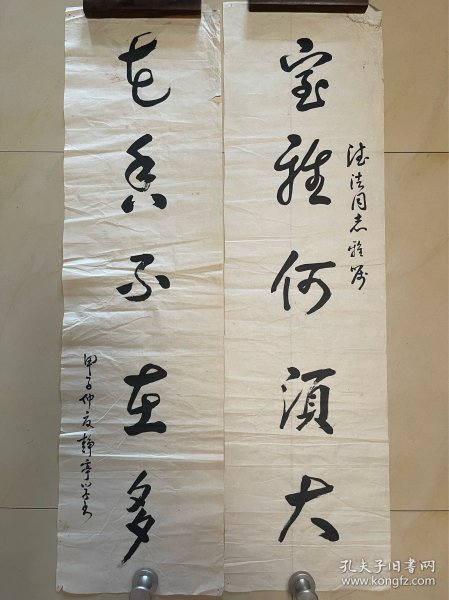 德法同志雅嘱
室雅何须大
花香不在多
甲子仲夏静亭学书
孔夫子旧书网
www.kongfz.com